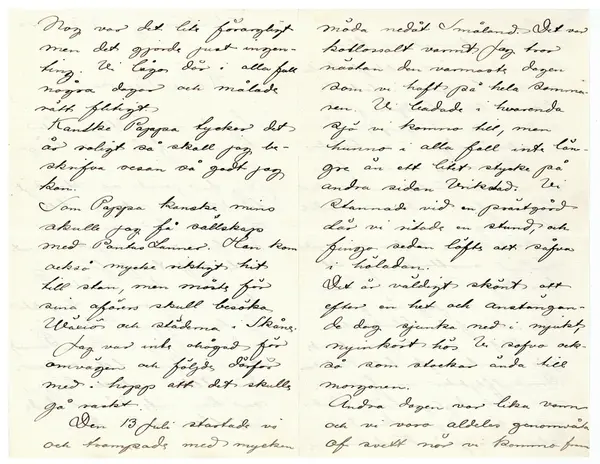 Nog var det lite förargligt
men det gjorde just ingen-
ting. Vi lågo där i alla fall
några dagar och målade
rätt flitigt.
Kanske Pappa tycker det
är roligt så skall jag be-
skrifva resan så godt jag
kan.
Som Pappa kanske mins
skulle jag få sällskap
med Pontus Lanner. Han kom
också mycke riktigt hit
till stan, men måste för
sina affärers skull besöka
Wäxiö och städerna i Skåne.
Jag var inte ohogad för
omvägen och följde därför
med i hopp att det skulle
gå raskt.
Den 13 juli startade vi
och trampade med mycken
möda nedåt Småland. Det var
kollossalt varmt. Jag tror
nästan den varmaste dagen
som vi haft på hela somma-
ren. Vi badade i hvarenda
sjö vi kommo till, men
hunno i alla fall inte län-
gre än ett litet stycke på
andra sidan Vrikstad. Vi
stannade vid en prästgård
där vi ritade en stund, och
fingo sedan löfte att sofva
i höladan.
Det är väldigt skönt att
efter en het och ansträngan-
de dag sjunka ned i mjukt
nyinkört hö. Vi sofvo ock-
så som stockar ända till
morgonen.
Andra dagen var lika varm
och vi voro aldeles genomvåta
af svett när vi kommo fram